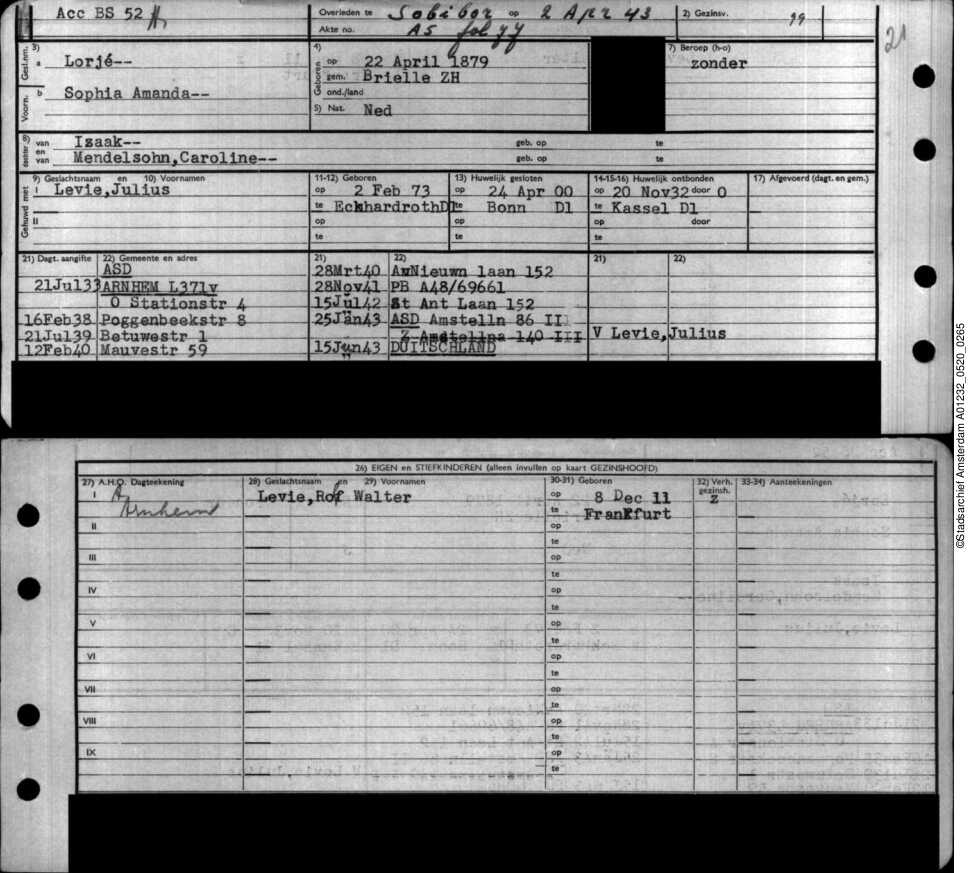 Acc BS 52 A
Overleden te Sobibor op 2 Apr 43
2) Gezinsv. 99
Akte no. A5 fol 77
21
3)
Gesl.nm. a Lorjé--
Voorn. b Sophia Amanda--
4)
Geboren op 22 April 1879
gem. Brielle ZH
ond./land
5) Nat. Ned
7) Beroep (h-o)
zonder
8) dochter van Izaak-- geb. op te
en van Mendelsohn,Caroline-- geb. op te
9) Geslachtsnaam en 10) Voornamen
11-12) Geboren
13) Huwelijk gesloten
14-15-16) Huwelijk ontbonden
17) Afgevoerd (dagt. en gem.)
Gehuwd met
I Levie,Julius
op 2 Feb 73
te EckhardrothDl
op 24 Apr 00
te Bonn Dl
op 20 Nov32 door O
te Kassel Dl
II
op op op door
te te te
21) Dagt. aangifte 22) Gemeente en adres
ASD
21Jul33 ARNHEM L371v
O Stationstr 4
16Feb38 Poggenbeekstr 8
21Jul39 Betuwestr 1
12Feb40 Mauvestr 59
21) 22)
28Mrt40 AvNieuwn laan 152
28Nov41 PB A48/69661
15Jul42 St Ant Laan 152
25Jan43 ASD Amstelln 86 II
Z Amstellna 140 III
15Jun43 DUITSCHLAND
21) 22)
V Levie,Julius
26) EIGEN en STIEFKINDEREN (alleen invullen op kaart GEZINSHOOFD)
27) A.H.O. Dagteekening
28) Geslachtsnaam en 29) Voornamen
30-31) Geboren
32) Verh. gezinsh.
33-34) Aanteekeningen
I A Arnhem
Levie,Rolf Walter
op 8 Dec 11
Z
te Frankfurt
II op
te
III op
te
IV op
te
V op
te
VI op
te
VII op
te
VIII op
te
IX op
te
©Stadsarchief Amsterdam A01232_0520_0265